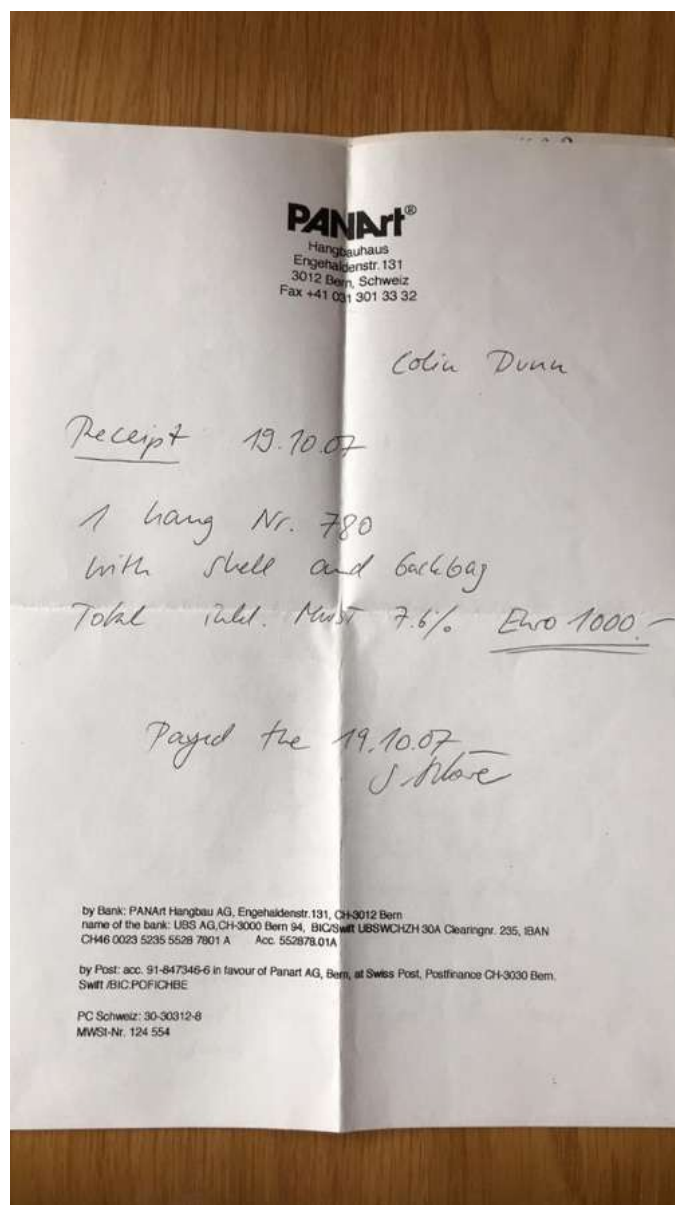 PANArt®
Hangbauhaus
Engehaldenstr. 131
3012 Bern, Schweiz
Fax +41 031 301 33 32
Colin Dunn
Receipt 19.10.07
1 hang Nr. 780
with shell and backbag
Total inkl. Mwst 7.6% Euro 1000.-
Payed the 19.10.07
by Bank: PANArt Hangbau AG, Engehaldenstr.131, CH-3012 Bern
name of the bank: UBS AG,CH-3000 Bern 94, BIC/Swift UBSWCHZH 30A Clearingnr. 235, IBAN
CH46 0023 5235 5528 7801 A Acc. 552878.01A
by Post: acc. 91-847346-6 in favour of Panart AG, Bern, at Swiss Post, Postfinance CH-3030 Bern.
Swift /BIC:POFICHBE
PC Schweiz: 30-30312-8
MWSt-Nr. 124 554